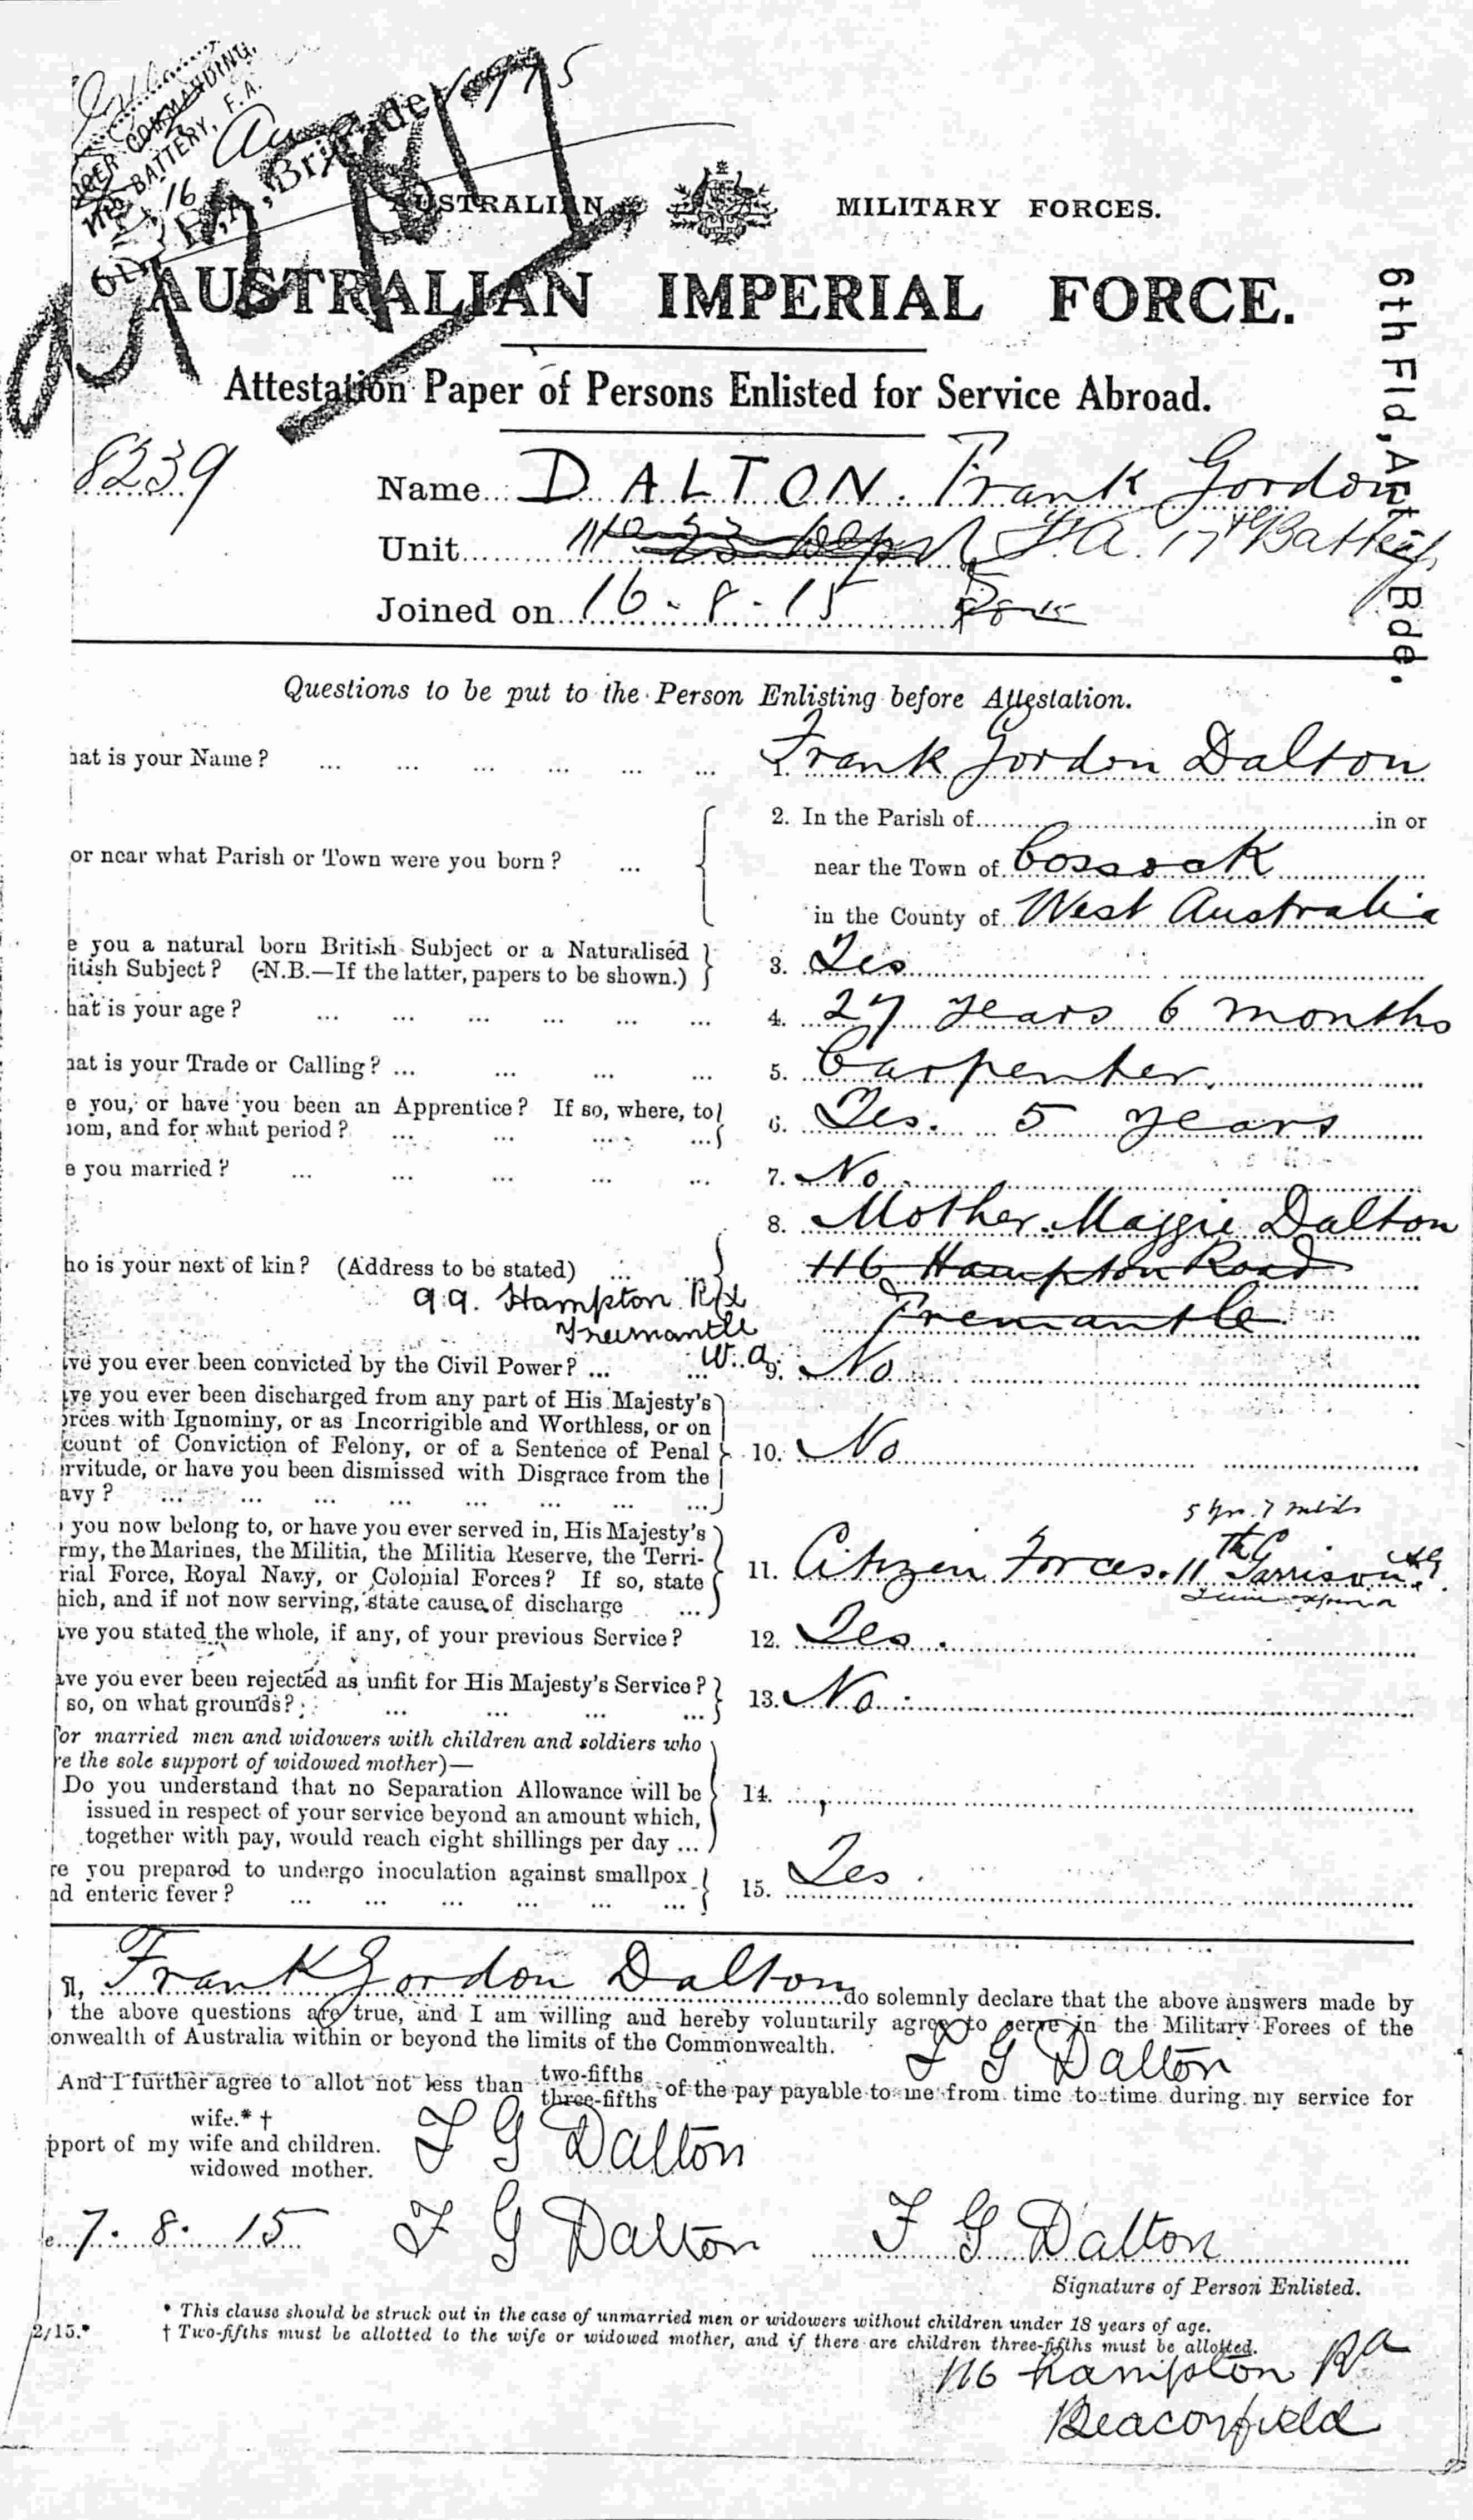 COMMANDING,
BATTERY, F.A.
16
F.A., Brigade
AUSTRALIAN MILITARY FORCES.
AUSTRALIAN IMPERIAL FORCE.
6th Fld, Art, Bde.
Attestation Paper of Persons Enlisted for Service Abroad.
8239
Name DALTON. Frank Gordon
Unit No 23 Depot F.A. 17th Battery
Joined on 16-8-15
Questions to be put to the Person Enlisting before Attestation.
hat is your Name? ... 1. Frank Gordon Dalton
or near what Parish or Town were you born? ... 2. In the Parish of in or
near the Town of Cossack
in the County of West Australia
e you a natural born British Subject or a Naturalised
itish Subject? (N.B.—If the latter, papers to be shown.) 3. Yes
hat is your age? ... 4. 27 years 6 months
hat is your Trade or Calling? ... 5. Carpenter.
e you, or have you been an Apprentice? If so, where, to
hom, and for what period? ... 6. Yes. 5 years
e you married? ... 7. No.
8. Mother. Maggie Dalton
ho is your next of kin? (Address to be stated) ... 116 Hampton Road
99. Hampton Rd Fremantle
Fremantle
W.A.
ave you ever been convicted by the Civil Power? ... 9. No
ave you ever been discharged from any part of His Majesty's
orces with Ignominy, or as Incorrigible and Worthless, or on
count of Conviction of Felony, or of a Sentence of Penal 10. No
ervitude, or have you been dismissed with Disgrace from the
avy? ...
5 yrs. 7 mths
you now belong to, or have you ever served in, His Majesty's
rmy, the Marines, the Militia, the Militia Reserve, the Terri-
rial Force, Royal Navy, or Colonial Forces? If so, state 11. Citizen Forces. 11th Garrison
hich, and if not now serving, state cause of discharge ...
ave you stated the whole, if any, of your previous Service? 12. Yes.
ave you ever been rejected as unfit for His Majesty's Service?
so, on what grounds? ... 13. No.
For married men and widowers with children and soldiers who
re the sole support of widowed mother)—
Do you understand that no Separation Allowance will be 14.
issued in respect of your service beyond an amount which,
together with pay, would reach eight shillings per day ...
re you prepared to undergo inoculation against smallpox
nd enteric fever? ... 15. Yes.
I, Frank Gordon Dalton do solemnly declare that the above answers made by
the above questions are true, and I am willing and hereby voluntarily agree to serve in the Military Forces of the
onwealth of Australia within or beyond the limits of the Commonwealth.
F G Dalton
And I further agree to allot not less than two-fifths three-fifths of the pay payable to me from time to time during my service for
wife.* †
pport of my wife and children.
widowed mother.
F G Dalton
e 7. 8. 15 F G Dalton F G Dalton
Signature of Person Enlisted.
* This clause should be struck out in the case of unmarried men or widowers without children under 18 years of age.
2/15.* † Two-fifths must be allotted to the wife or widowed mother, and if there are children three-fifths must be allotted.
116 Hampton Rd
Beaconsfield